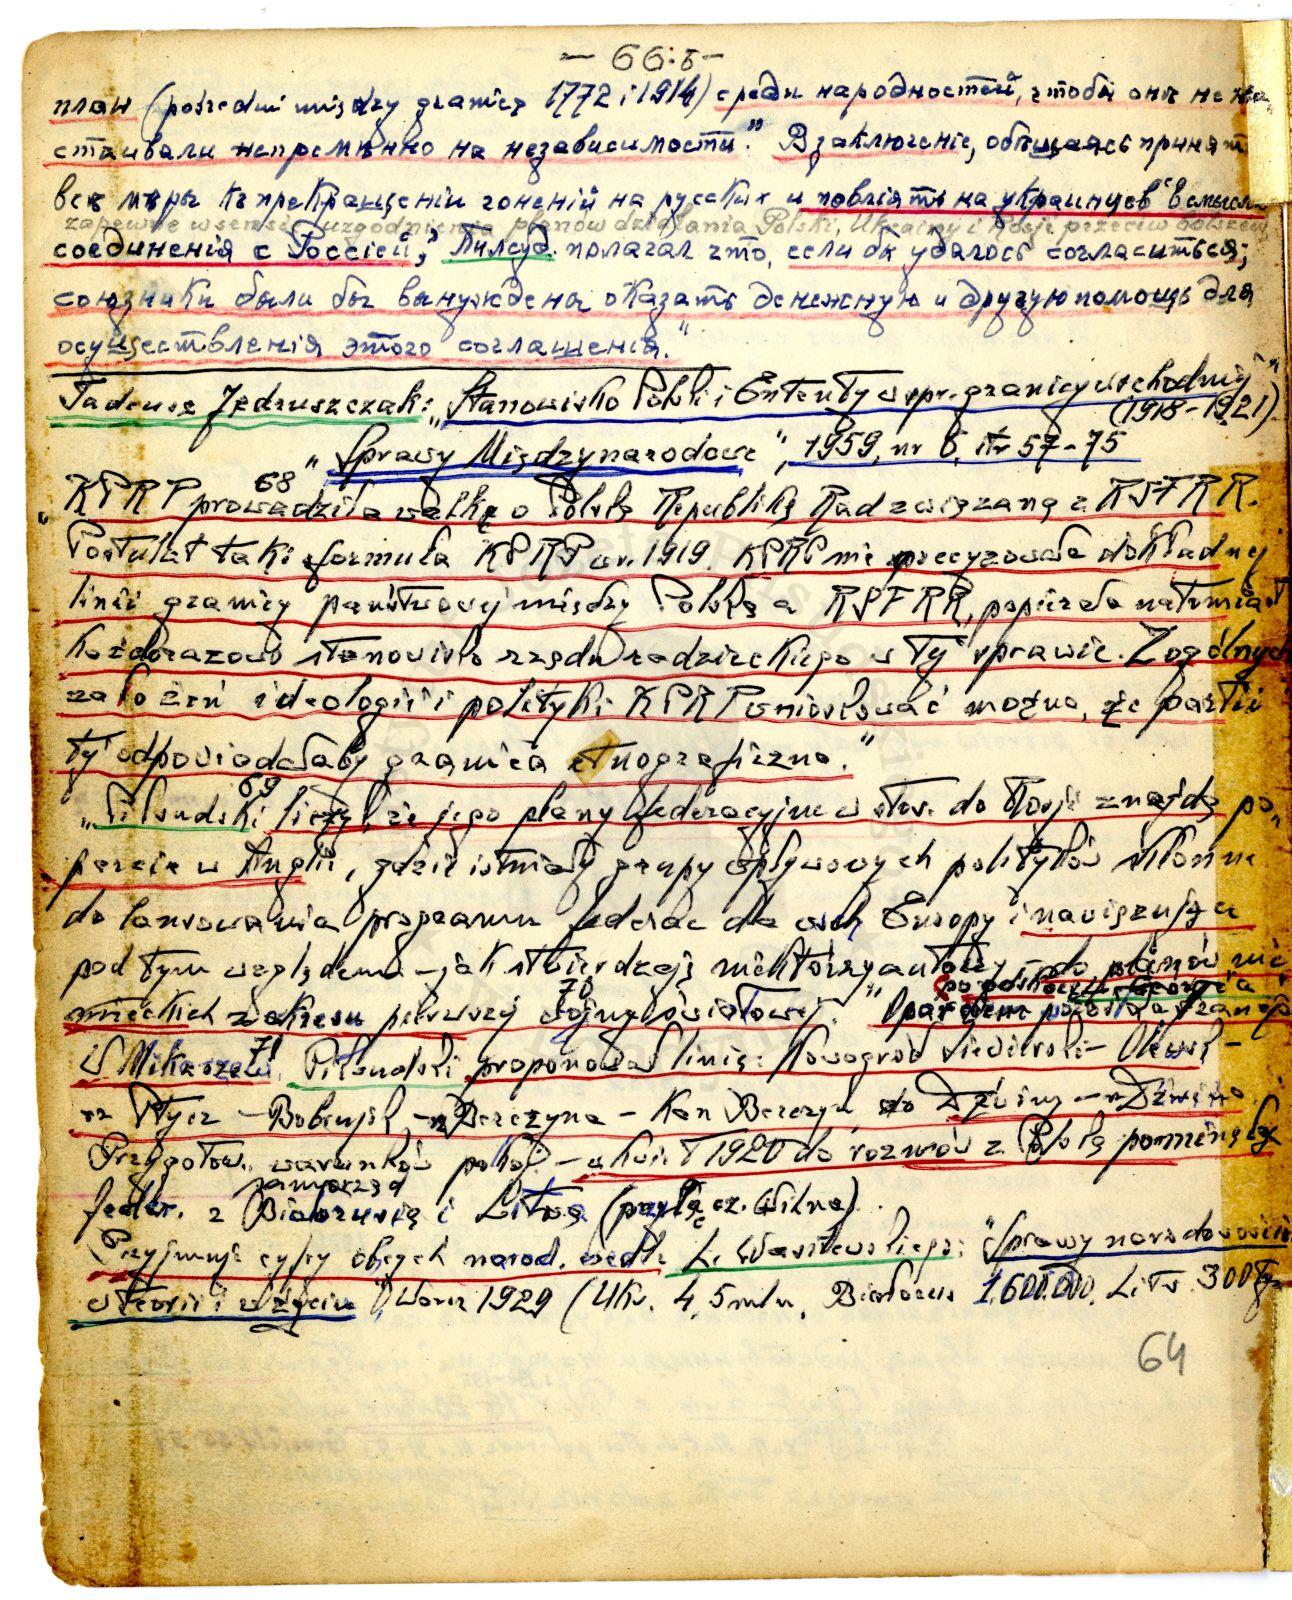 — 66:b —
план (pośredni między granicą 1772 i 1914) среди народностей, чтобы они не на
стаивали непремѣнно на независимости." В заключеніе, обѣщаясь принять
всѣ мѣры къ прекращенію гоненій на русских и повліять на украинцев "в смыслѣ
zapewne w sensie uzgodnienia planów działania Polski, Ukrainy i Rosji przeciw bolszew
соединенія с Россіей", Пилсуд. полагал что, если бы удалось согласиться,
союзники были бы вынуждены оказать денежную и другую помощь для
осуществленія этого соглашенія."
Tadeusz Jędruszczak: "Stanowisko Polski i Ententy w spr. granicy wschodniej"
(1918-1921).
"Sprawy Międzynarodowe", 1959, nr 6, str 57-75
68
"KPRP prowadziła walkę o Polską Republikę Rad związaną z RSFRR.
Postulat taki sformuła KPRP w r. 1919. KPRP nie precyzowała dokładnej
linii granicy państwowej między Polską a RSFRR, popierała natomiast
każdorazowo stanowisko rządu radzieckiego w tej sprawie. Z ogólnych
założeń ideologii i polityki KPRP wnioskować można, że partii
tej odpowiadałaby granica etnograficzna."
69
"Piłsudski liczył, że jego plany federacyjne w stos. do Rosji znajdą po,
parcie w Anglii, gdzie istniały grupy wpływowych polityków skłonne
do lansowania programu federac dla wsch Europy i nawiązujące
pod tym względem – jak stwierdzają niektórzy autorzy – do planów nie
mieckich z okresu pierwszej wojny światowej."
70
71
W Mikaszew. Piłsudski proponował linię: Nowogród Siewierski – Olewsk –
rz Ptycz – Bobrujsk – rz Berezyna – Kan Berezyń. do Dźwiny – rz Dźwina.
Przygotow. warunków pokoj. – w kwiet 1920 do rozmów z Polską pominęły
samorząd
feder. z Białorusią i Litwą (przyłącz. Wilna).
Przyjmuje cyfry obcych narod. wedł. L. Wasilewskiego: "Sprawy narodowościowe
w teorii i w życiu", Warsz 1929 (Ukr. 4,5 mln, Białorus 1.600.000, Litw. 300 tys.
64